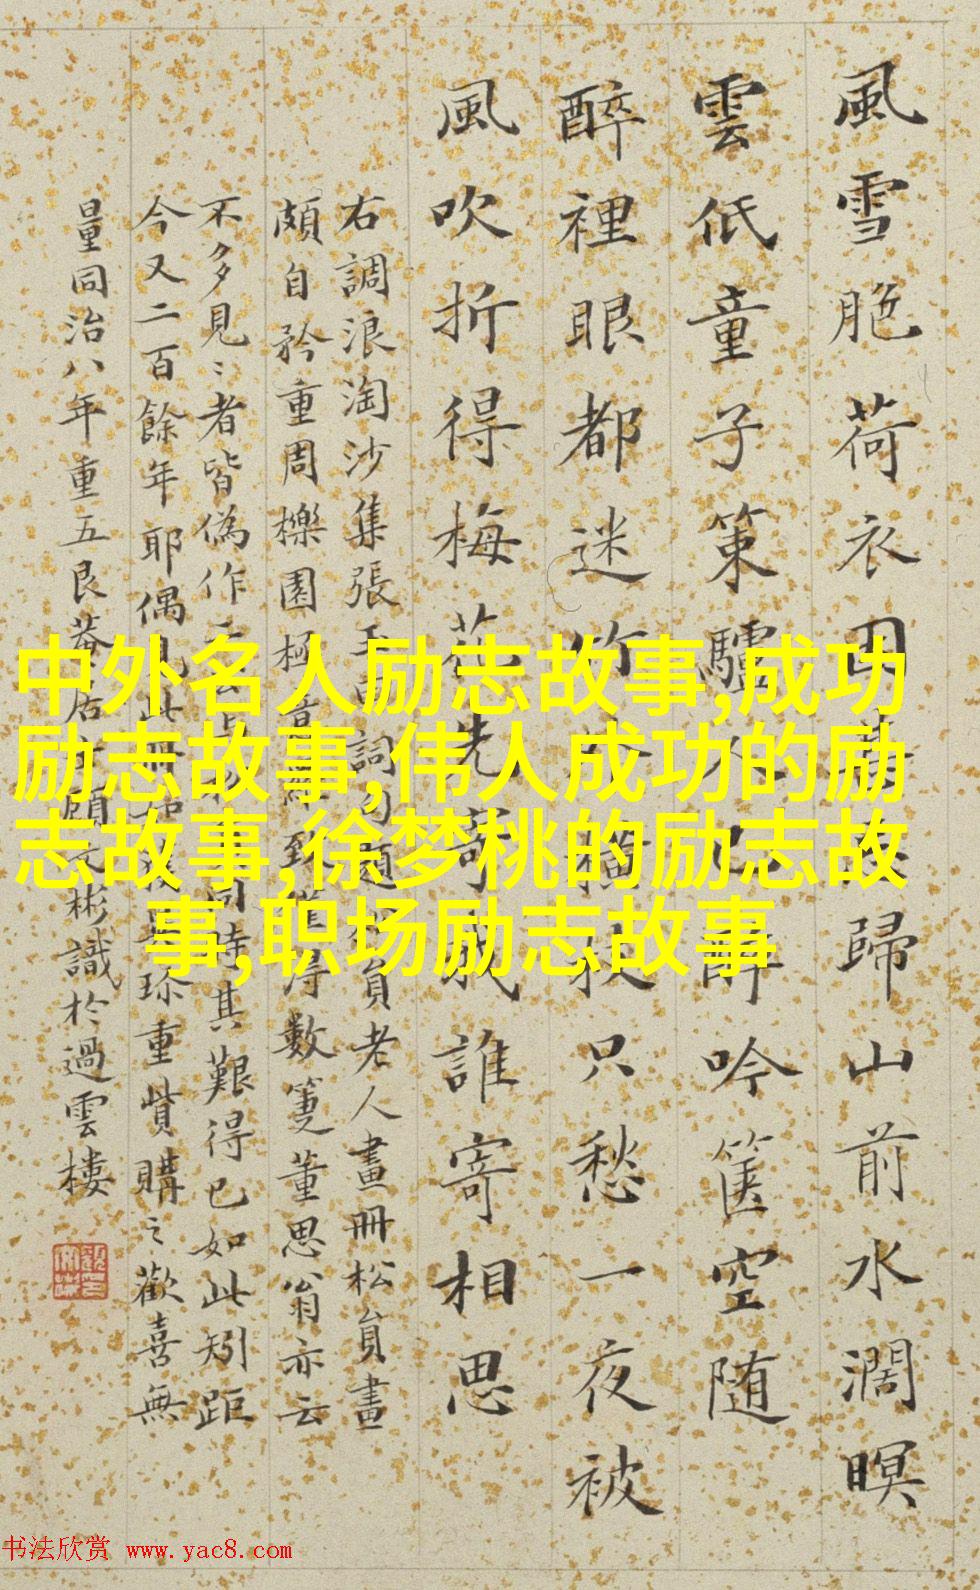 風雪脃荷衣
歸山前水濶暝
雲低童子策驢
吟篋空随
醉裡眼都迷
只愁一夜被
風吹折得梅花
誰寄相思
右調浪淘沙集張玉
員老人畫冊松貟畫
頗自矜重周櫟園極
得數篋董思翁亦云
不多見〻者皆偽作
同時其艱得已如此矧距
今又二百餘年耶偶見此冊
珍重賞購之歡喜無
量同治八年重五艮菴居士顧文彬識於過雲樓
中外名人励志故事,成功
励志故事,伟人成功的励
志故事,徐梦桃的励志故
事,职场励志故事
书法欣赏 www.yac8.com